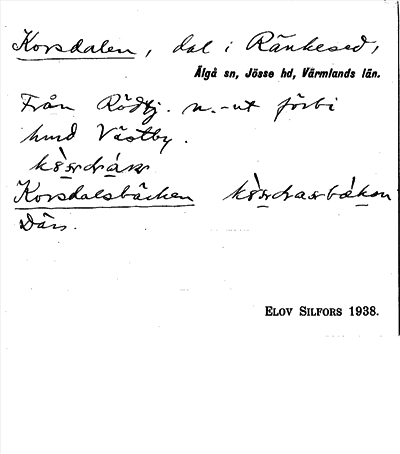 Korsdalen, dal i Ränkesed,
Älgå sn, Jösse hd, Värmlands län.
Från Rödbj. n.-ut förbi
hmd Västby.
Korsdalsbäcken
Därs.
ELOV SILFORS 1938.